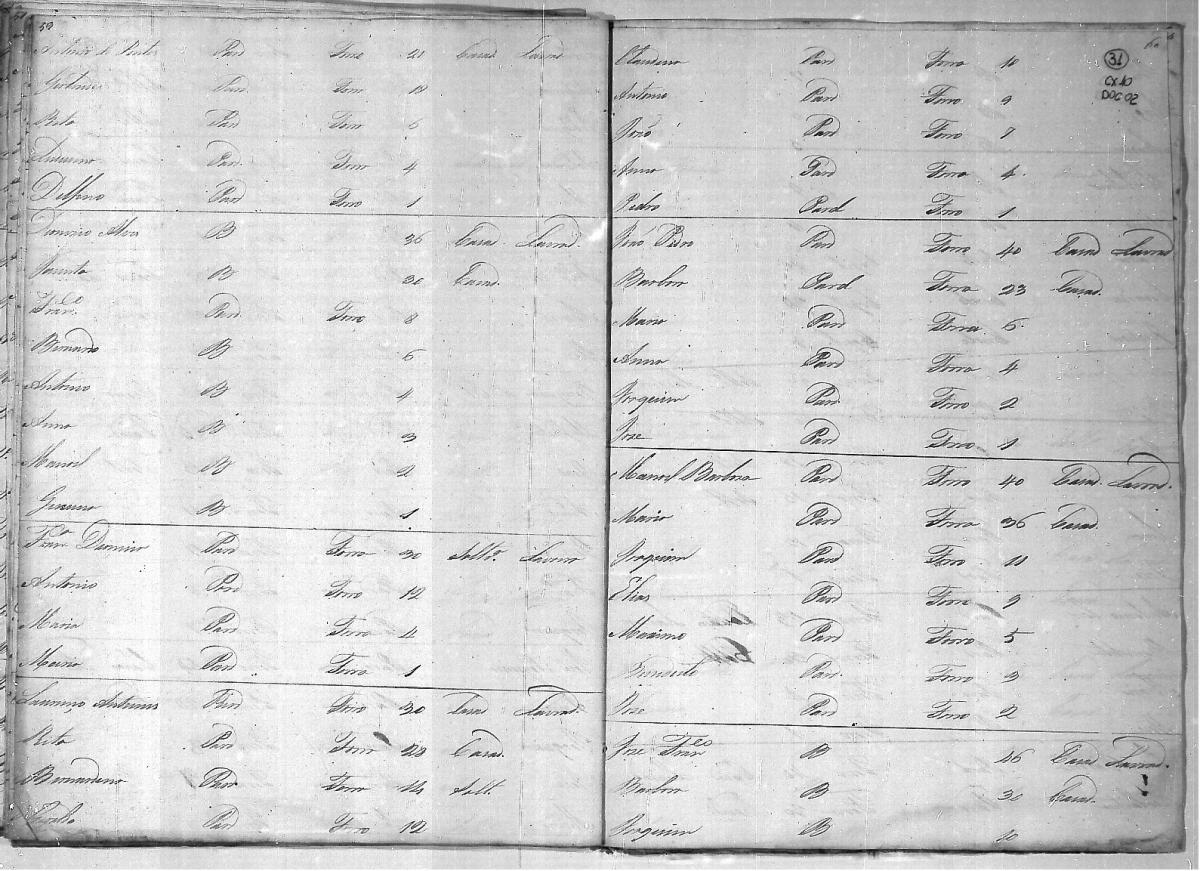 59
Antonio de Pard Forro 21 Casad Lavrad
Pard Forro 18
Rita Pard Forr 6
Pard Forro 4
Delfino Pard Forro 1
Dionizio Alves B 36 Casad Lavrad.
Jacinta B 30 Casad.
Fran.co Pard Forro 8
Bernardo B 6
Antonio B 4
Anna B 3
Manoel B 2
B 1
Fran.co Pard Forro 30 Solt.o Lavrad
Antonio Pard Forro 12
Maria Pard Forra 4
Maria Pard Forra 1
Antunes Pard Forro 30 Casad Lavrad.
Rita Pard Forra 28 Casad.
Bernardino Pard Forro 14 Solt.
Pard Forro 12
60
31
CX10
DOC 02
Claudino Pard Forro 10
Antonio Pard Forro 9
João Pard Forro 7
Anna Pard Forra 4.
Pedro Pard Forro 1
João Pard Forro 40 Casad Lavrad
Barbora Pard Forra 23 Casad.
Maria Pard Forra 6.
Anna Pard Forra 4
Joaquim Pard Forro 2
Joze Pard Forro 1
Manoel Barboza Pard Forro 40 Casad. Lavrad.
Maria Pard Forra 36 Casad.
Joaquim Pard Forro 11
Elias Pard Forro 9
Maximo Pard Forro 5
Pard. Forro 3
Joze Pard Forro 2
Joze Fran.co B 46 Casad Lavrad.
Barbora B 30 Casad.
Joaquim B 10